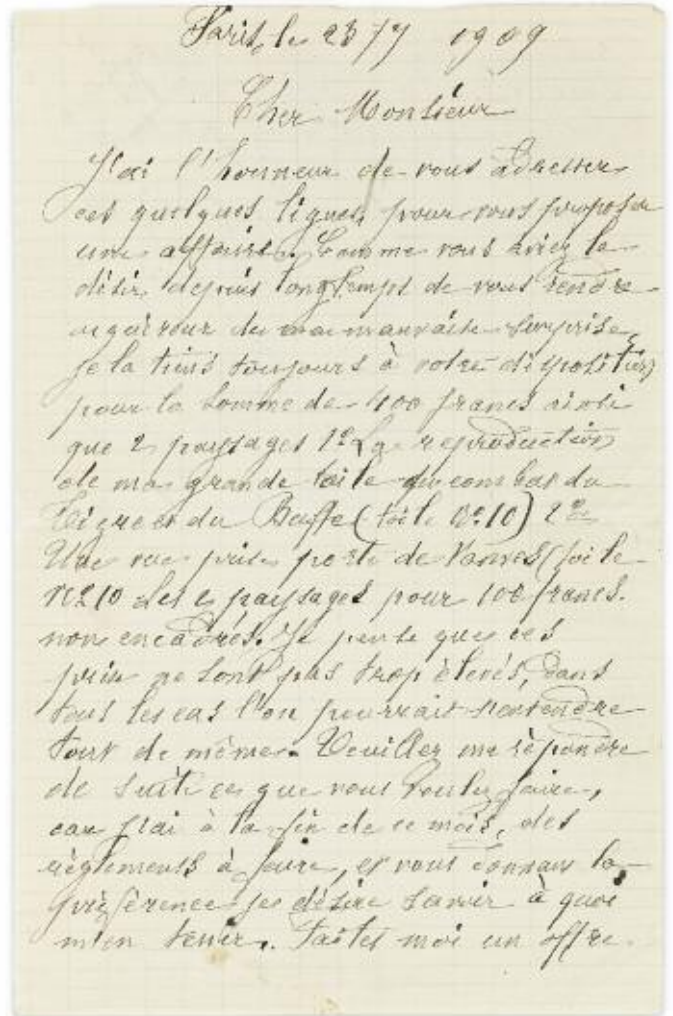 Paris, le 28/7 1909
Cher Monsieur
J'ai l'honneur de vous adresser
ces quelques lignes, pour vous proposer
une affaire. Comme vous aviez le
désir, depuis longtemps de vous rendre
aquéreur de ma mauvaise surprise,
je la tiens toujours à votre disposition
pour la somme de 400 francs ainsi
que 2 paysages 1º La reproduction
de ma grande toile du combat du
Tigre et du Buffle (toile Nº 10) 2º
Une vue prise porte de Vanves (toile
Nº 10 Les 2 paysages pour 100 francs.
non encadrés. Je pense que ces
prix ne sont pas trop élevés, dans
tous les cas l'on pourrait s'entendre
tout de même. Veuillez me répondre
de suite ce que vous voulez faire,
car j'ai à la fin de ce mois, des
règlements à faire, et vous donnant la
préférence je désire savoir à quoi
m'en tenir. Faites moi un offre.